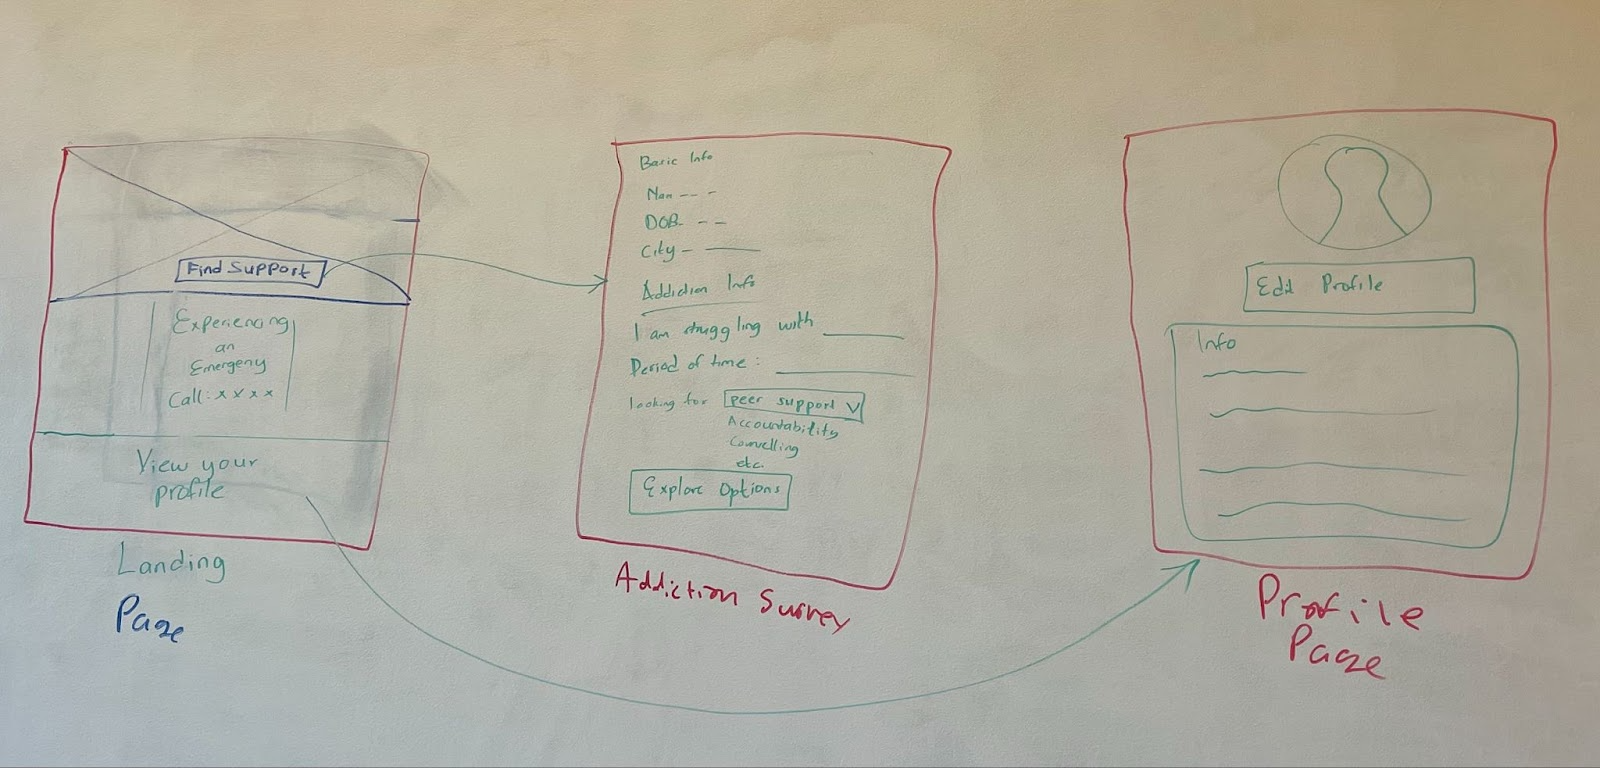 Find Support
Experiencing
an
Emergeny
Call: x x x x
View your
profile
Landing
Page
Basic Info
Nam -- -
DOB- --
City -
Addiction Info
I am struggling with
Period of time:
looking for peer support V
Accountability
Counselling
etc.
Explore Options
Addiction Survey
Edit Profile
Info
Profile
Page